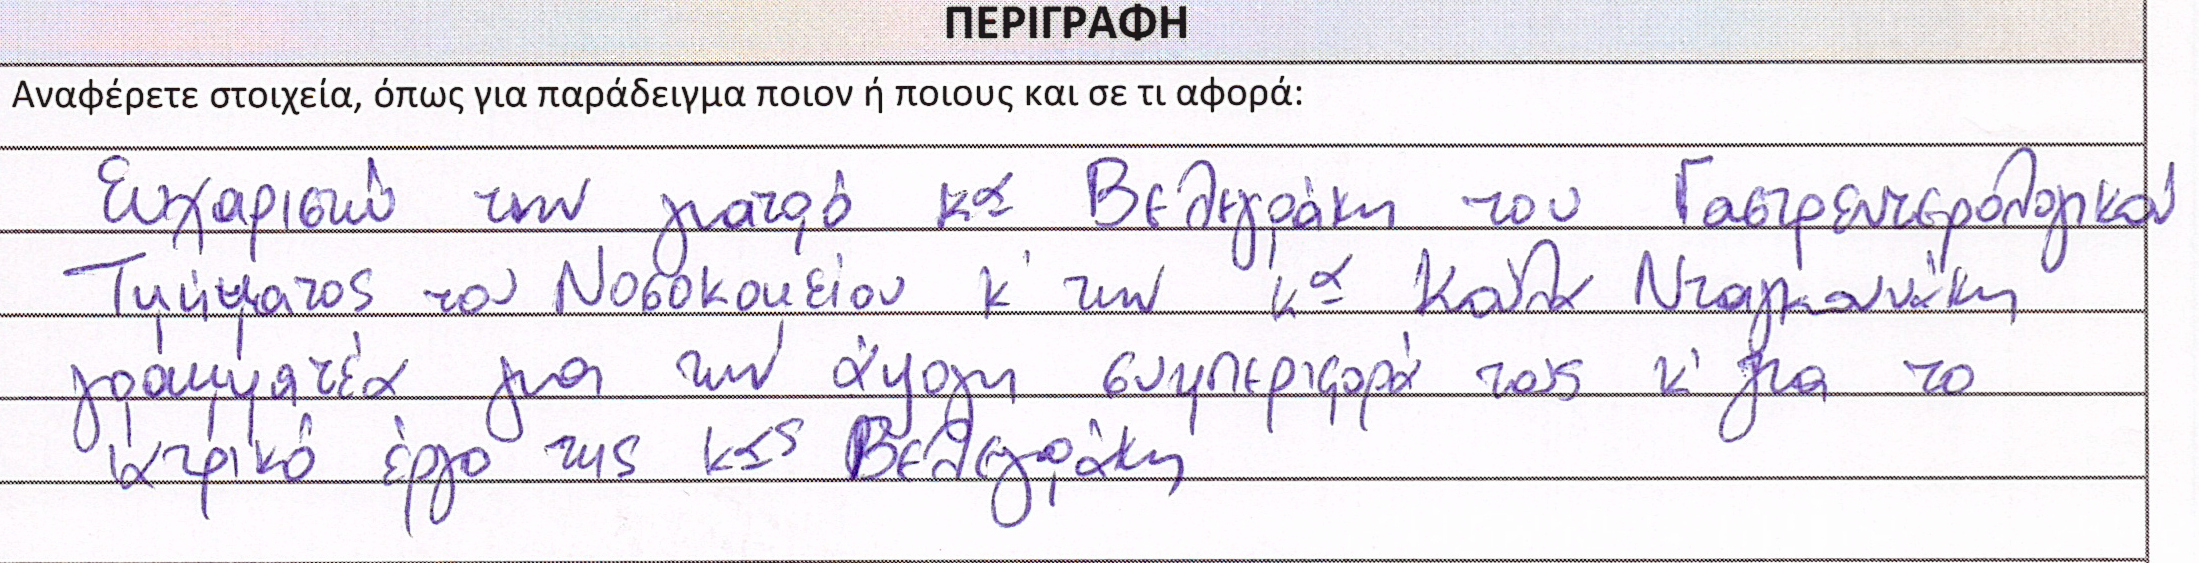 ΠΕΡΙΓΡΑΦΗ
Αναφέρετε στοιχεία, όπως για παράδειγμα ποιον ή ποιους και σε τι αφορά:
Ευχαριστώ την γιατρό κα Βελεγράκη του Γαστρεντερολογικού
Τμήματος του Νοσοκομείου κ' την κα Κούλα Νταγιαννάκη
γραμματέα για την άψογη συμπεριφορά τους κ' για το
ιατρικό έργο της κας Βελεγράκη